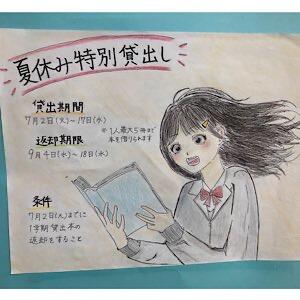 夏休み特別貸出し
貸出期間
7月2日(火)~17日(水)
※1人最大5冊まで
本を借りられます
返却期限
9月4日(水)~18日(水)
条件
7月2日(火)までに
1学期貸出本の
返却をすること